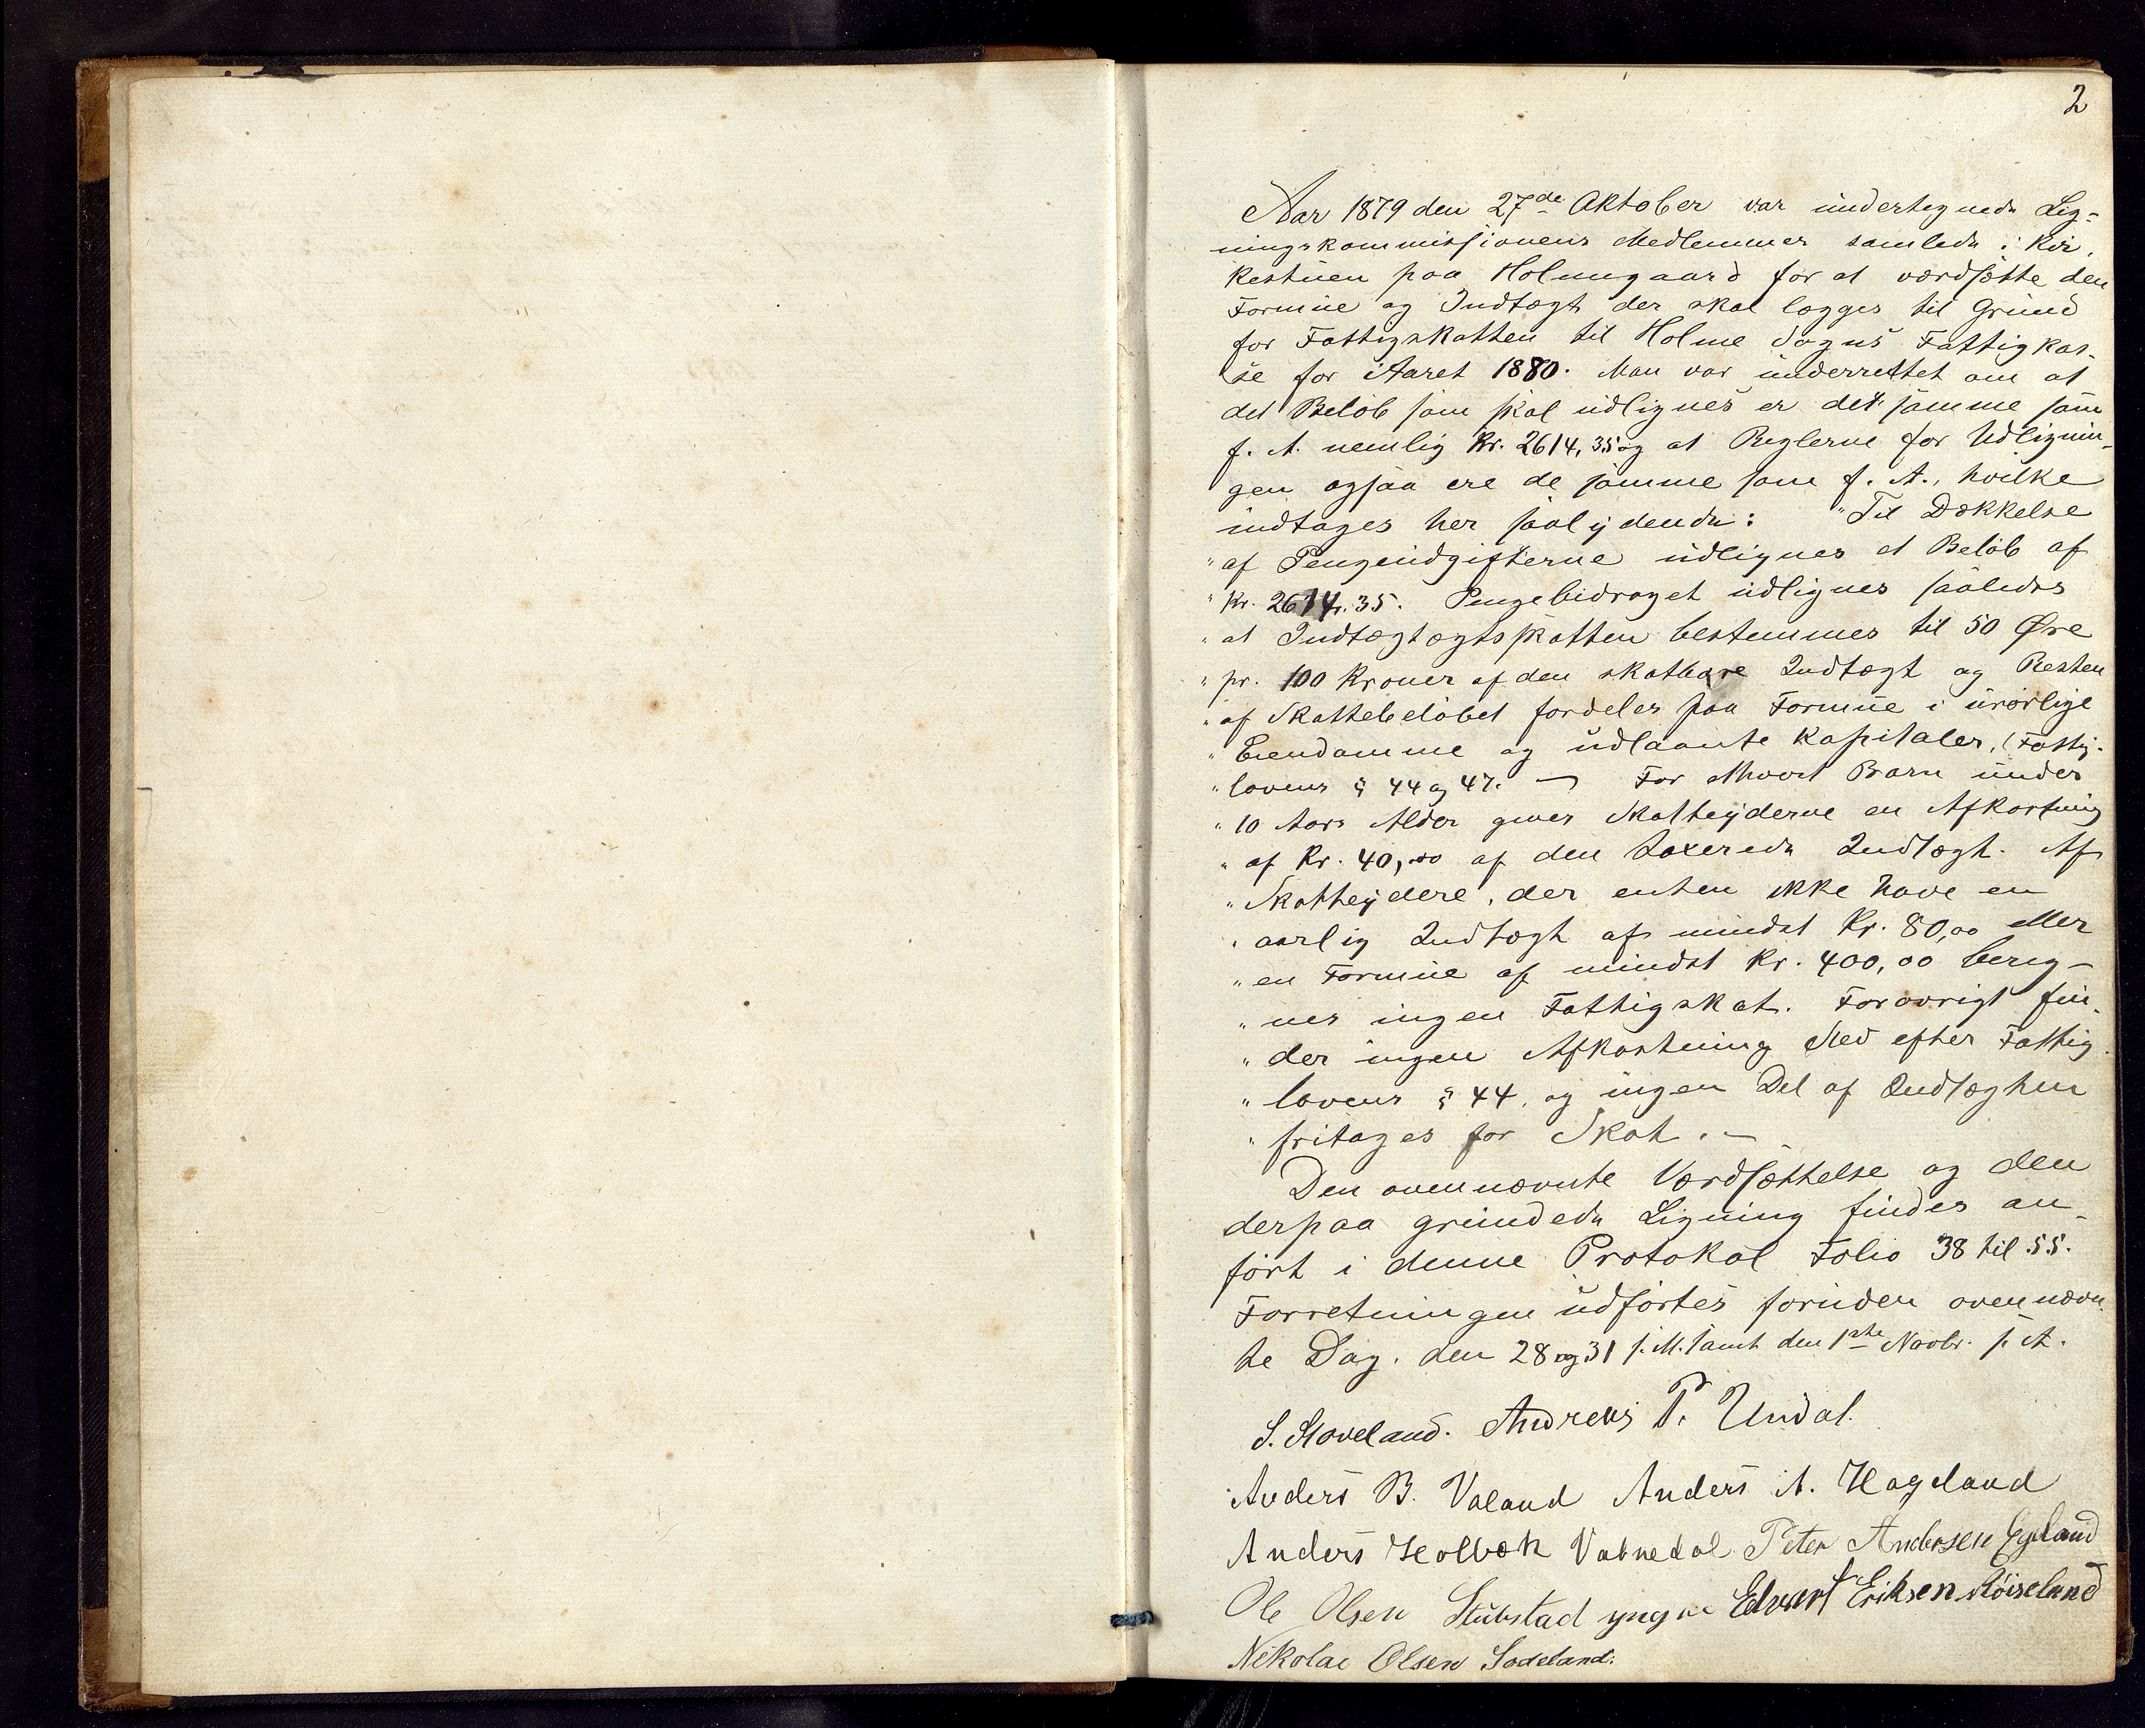 2
Aar 1879 den 27de Oktober var undertegnede Lig-
ningskommissionens Medlemmer samlede i Kir-
kestuen paa Holmegaard for at værdsætte den
Formue og Indtægt der skal lægges til Grund
for Fattigskatten til Holme Sogns Fattigkas-
se for Aaret 1880. Man var underrettet om at
det Beløb som skal udlignes er det samme som
f. A. nemlig Kr. 2614,35 og at Reglerne for Udlignin-
gen ogsaa ere de samme som f. A., hvilke
indtages her saalydende: "Til Dækkelse
" af Pengeudgifterne udlignes et Beløb af
" Kr. 2614,35. Pengebidraget udlignes saaledes
" at Indtægtægtsskatten bestemmes til 50 Øre
" pr. 100 Kroner af den skatbare Indtægt og Resten
" af Skattebeløbet fordeles paa Formue i urørlige
" Eiendomme og udlaante Kapitaler, (Fattig-
" lovens § 44 og 47. — For hvert Barn under
" 10 Aars Alder gives Skatteyderne en Afkortning
" af Kr. 40,00 af den taxerede Indtægt. Af
" Skatteydere, der enten ikke have en
" aarlig Indtægt af mindst Kr. 80,00 eller
" en Formue af mindst Kr. 400,00 bereg-
" nes ingen Fattigskat. Forøvrigt fin-
" der ingen Afkortning Sted efter Fattig-
" lovens § 44, og ingen Del af Indtægten
" fritages for Skat. —
Den ovennævnte Værdsættelse og den
derpaa grundede Ligning findes an-
ført i denne Protokol Folio 38 til 55.
Forretningen udførtes foruden ovennævn-
te Dag, den 28 og 31 s. M. samt den 1ste Novbr. s. A.
S. Stoveland. Andreas P. Undal.
Anders B. Valand Anders A. Hageland
Anders Holbæk Vatnedal Peter Andersen Eyeland
Ole Olsen Stubstad yngre Edvart Eriksen Røiseland
Nikolai Olsen Sodeland.